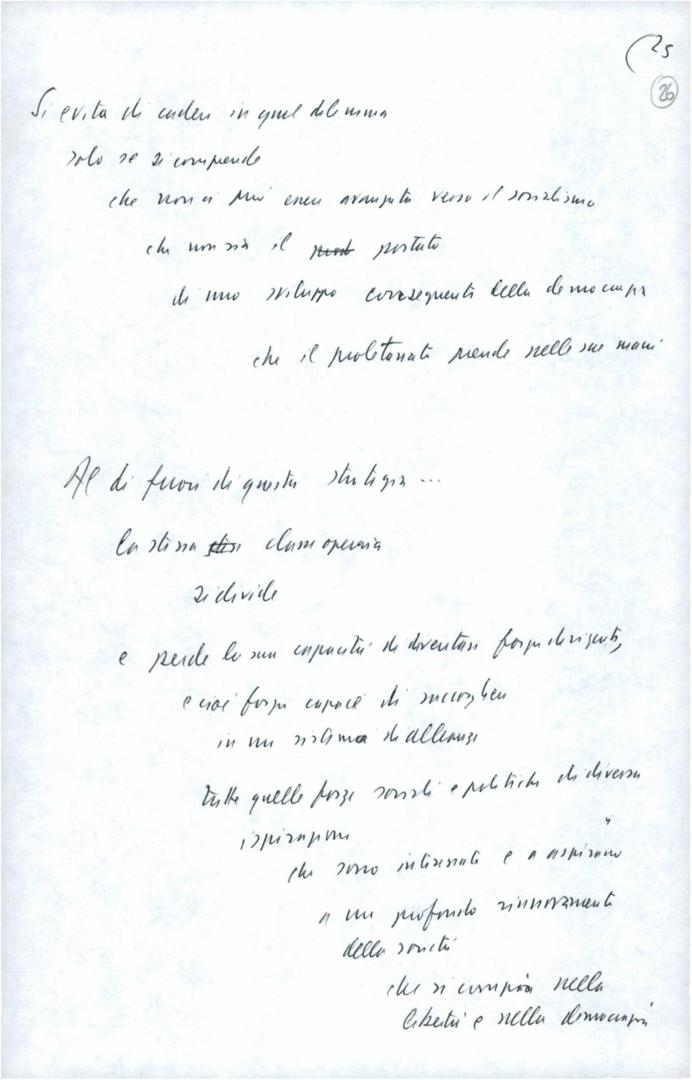 25
26
Si evita di cadere in quel dilemma
solo se si comprende
che non ci può essere avanzata verso il socialismo
che non sia il portato
di uno sviluppo conseguente della democrazia
che il proletariato prende nelle sue mani
Al di fuori di questa strategia ...
la stessa classe operaia
si divide
e perde la sua capacità di diventare forza dirigente,
e cioè forza capace di raccogliere
in un sistema di alleanze
tutte quelle forze sociali e politiche di diversa
ispirazione
che sono interessate e aspirano
a un profondo rinnovamento
della società
che si compia nella
libertà e nella democrazia